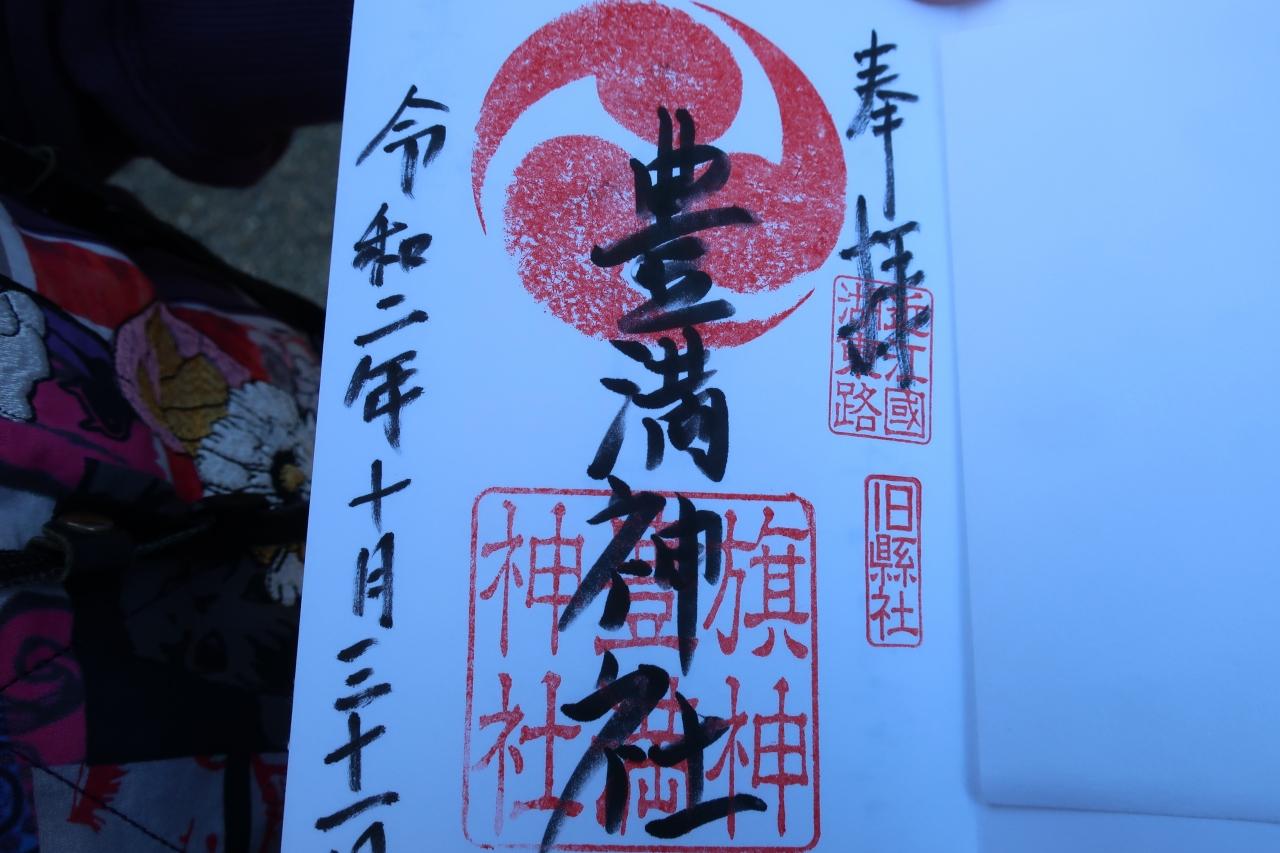 奉拝
近江國
湖東路
旧縣社
豊満神社
旗神
豊満
神社
令和二年十月三十一日